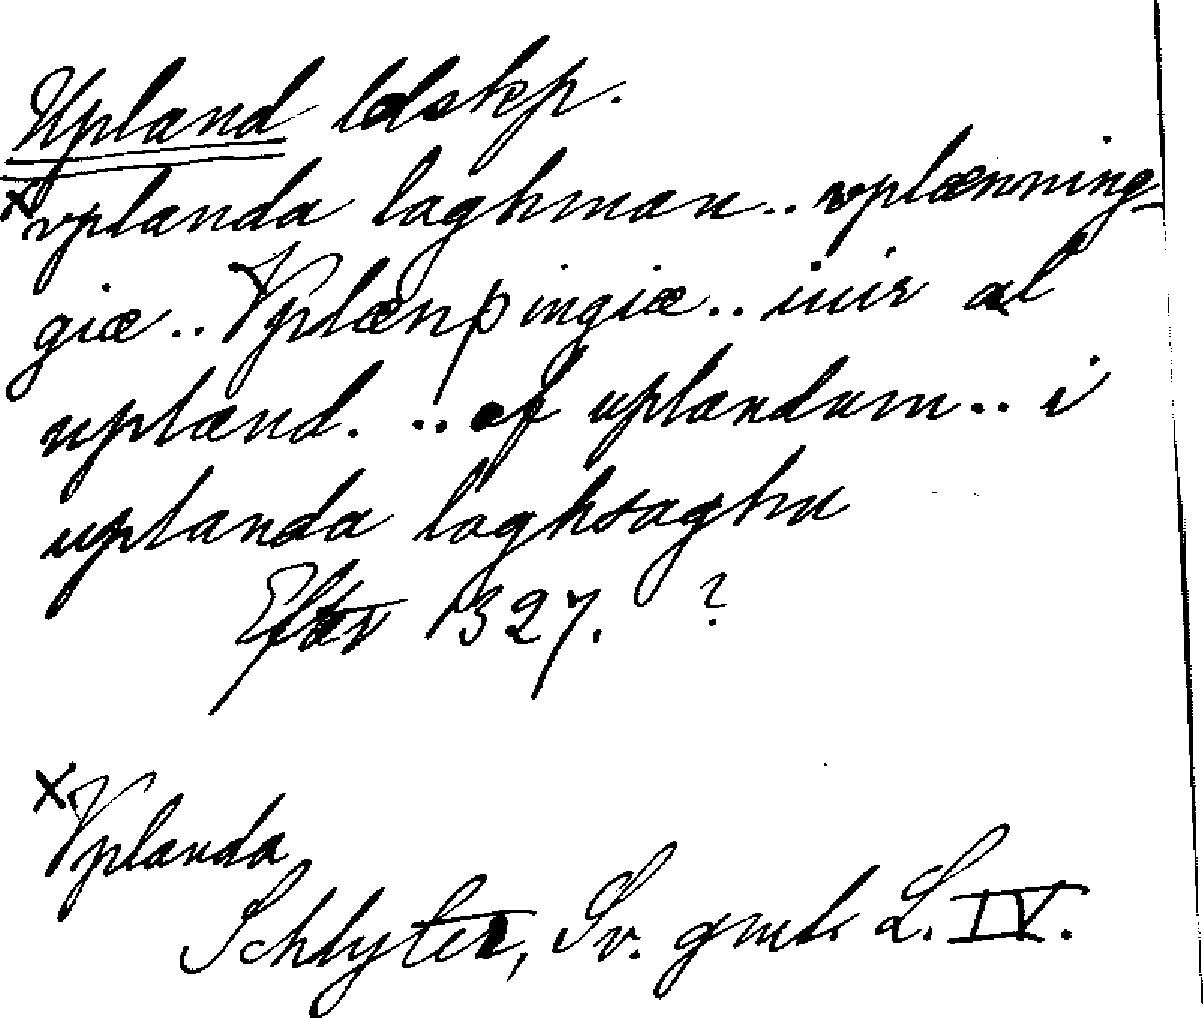 Upland ldskp.
×vplanda laghman.. vplænning-
giæ.. Vplænþingiæ.. iuir al
upland. .. af uplandum.. i
uplanda laghsaghu
Efter 1327. ?
×Vplanda
Schlyter, Sv. gml. L. IV.